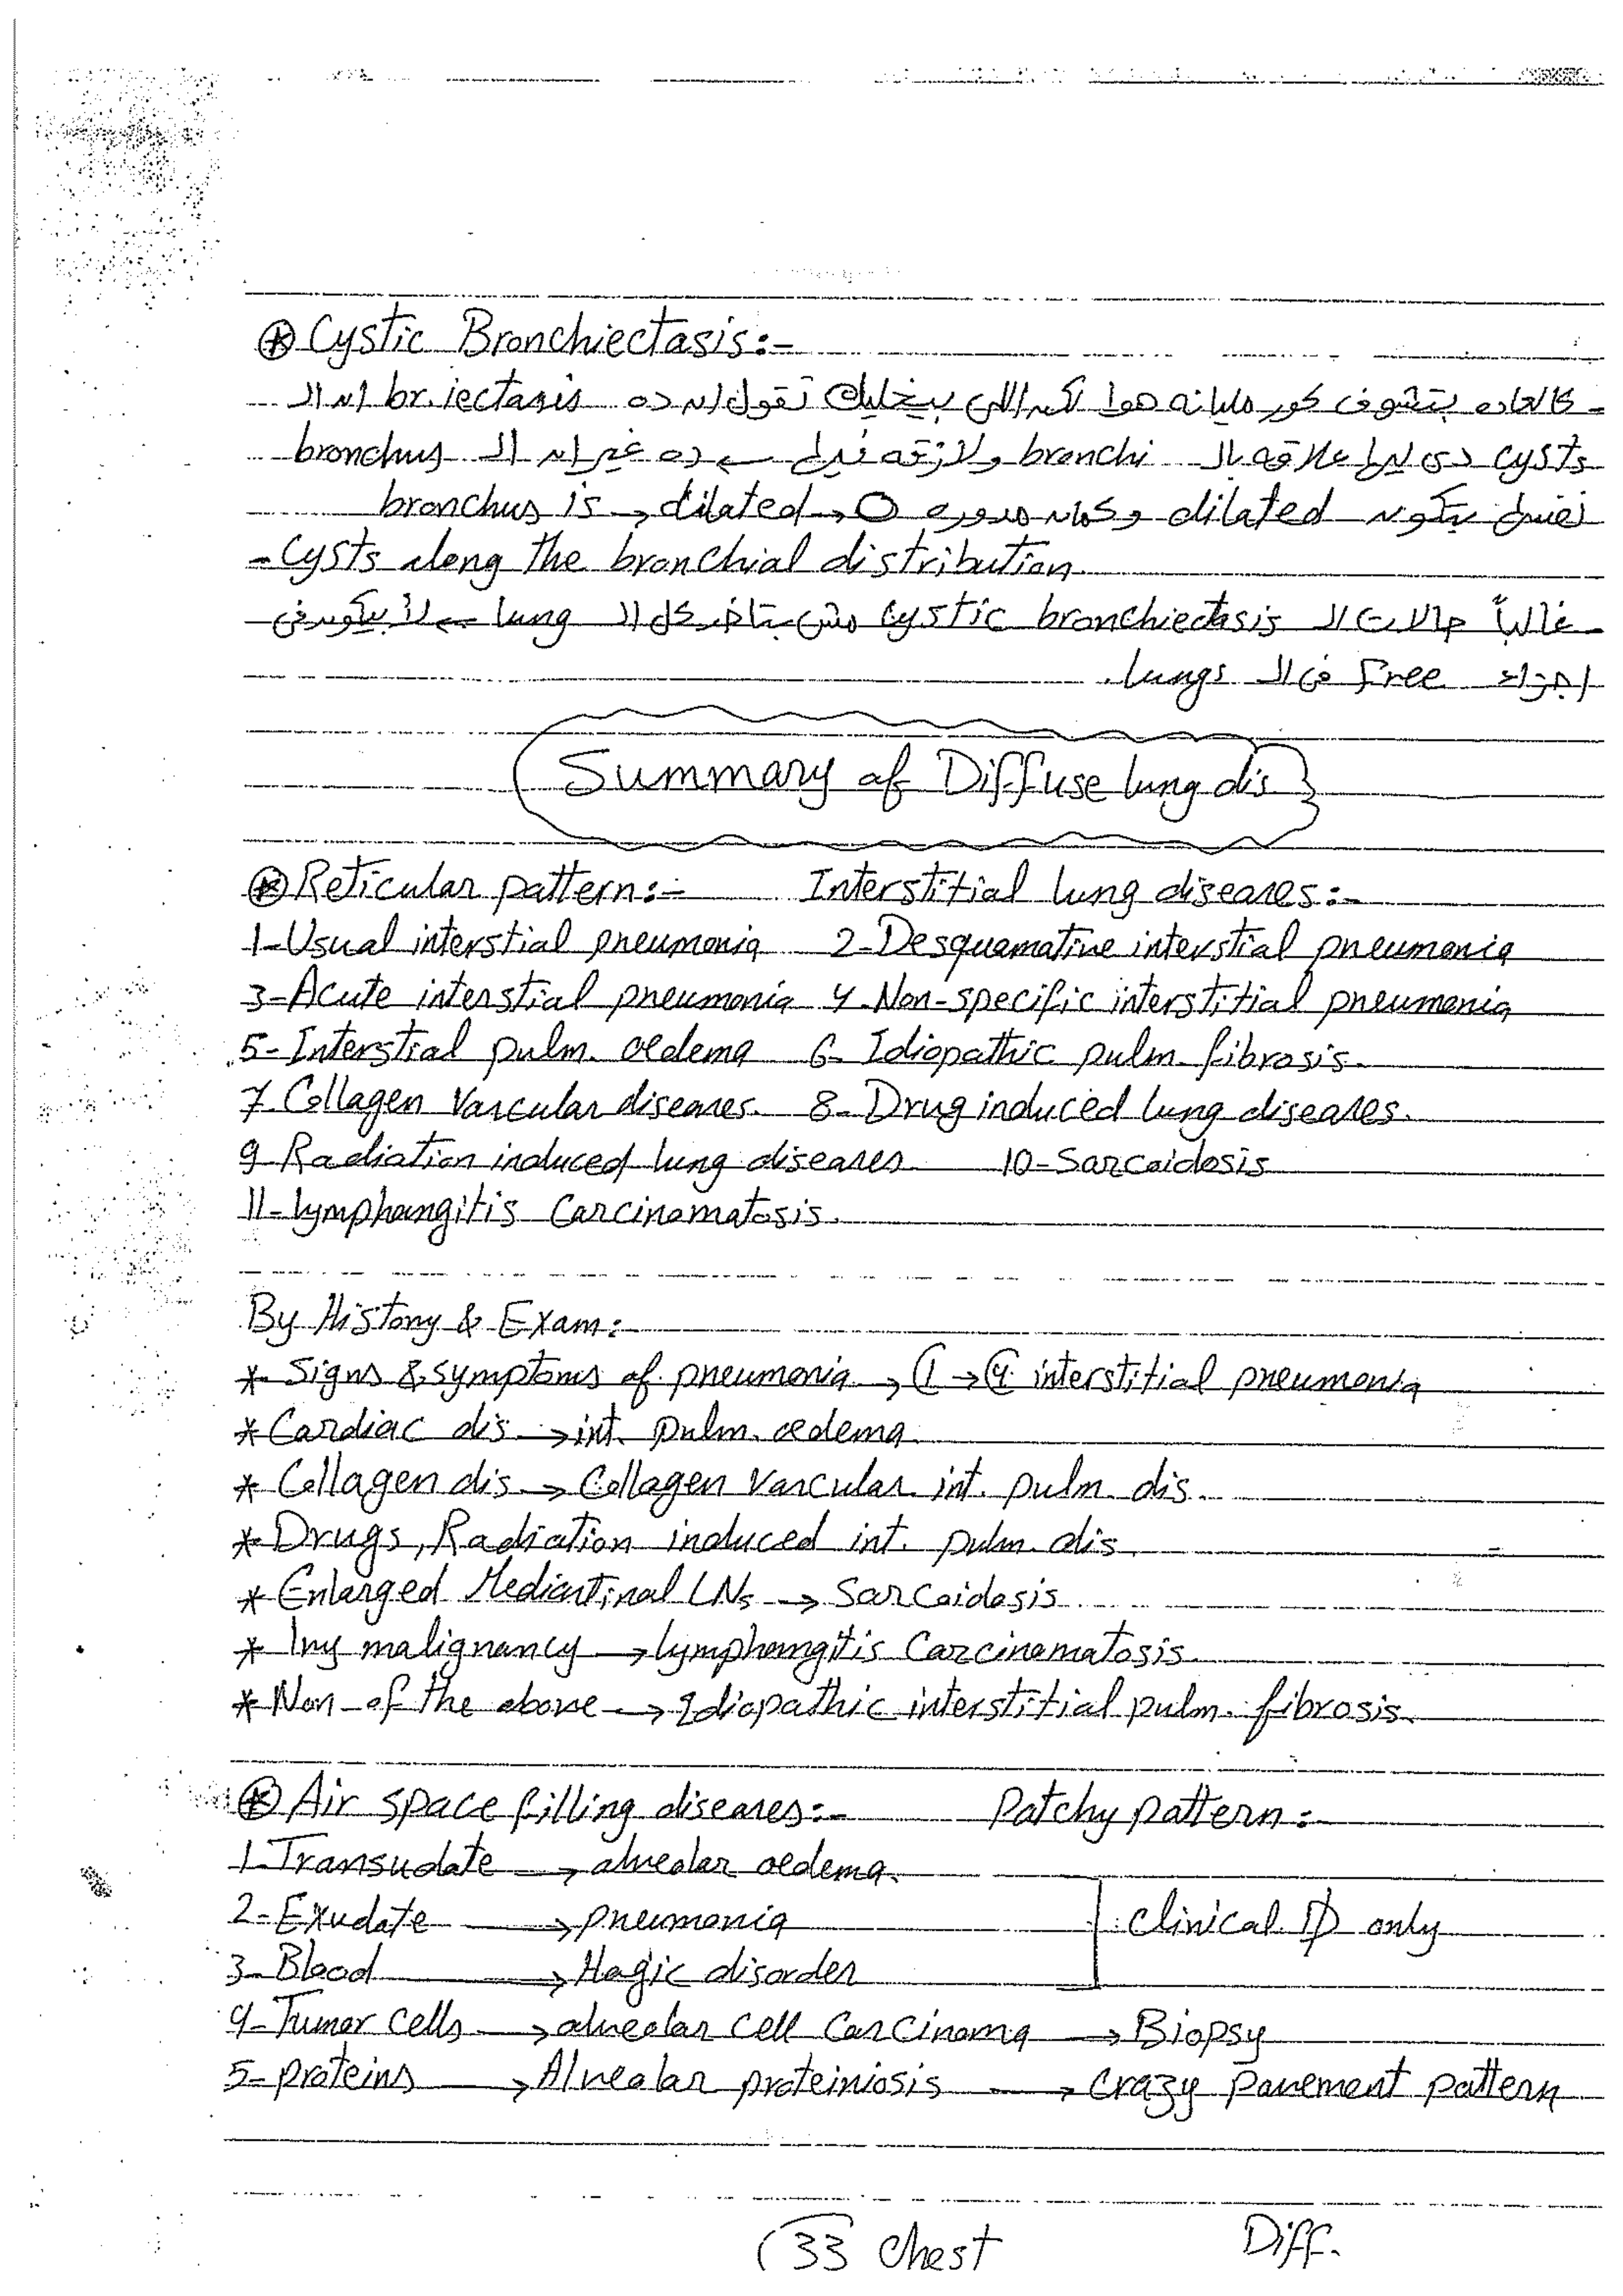 ⊛ Cystic Bronchiectasis:-
- كالعاده بتشوف كور مليانه هوا لكن اللي بيخليك تقول ان ده br.iectasis ان الـ
cysts دي ليها علاقه بالـ bronchi ولازقه فيها ← ده غير ان الـ bronchus
نفسها بتكون dilated وكمان مدوره ○ bronchus is → dilated →
- Cysts along the bronchial distribution
- غالباً حالات الـ cystic bronchiectasis مش بتاخد كل الـ lung ← لأ بيكون في
اجزاء Free في الـ lungs.
Summary of Diffuse lung dis
⊛ Reticular pattern:- Interstitial lung diseases:-
1-Usual interstial pneumonia 2-Desquamative interstial pneumonia
3-Acute interstial pneumonia 4-Non-specific interstitial pneumonia
5-Interstial pulm. oedema 6-Idiopathic pulm. fibrosis.
7-Collagen Vascular diseases. 8-Drug induced lung diseases.
9-Radiation induced lung diseases 10-Sarcoidosis
11-lymphangitis Carcinomatosis.
By History & Exam:-
* Signs & symptoms of pneumonia → ① → ④ interstitial pneumonia
* Cardiac dis → int. pulm. oedema
* Collagen dis → Collagen Vascular int. pulm. dis.
* Drugs, Radiation induced int. pulm. dis
* Enlarged Mediastinal LNs → Sarcoidosis
* Iry malignancy → lymphangitis Carcinomatosis
* Non of the above → Idiopathic interstitial pulm. fibrosis.
⊛ Air space filling diseases:- Patchy pattern:-
1-Transudate → alveolar oedema.
2-Exudate → pneumonia
clinical D only
3-Blood → Hagic disorder
4-Tumor cells → alveolar cell Carcinoma → Biopsy
5-proteins → Alveolar proteiniosis → Crazy pavement pattern
33 Chest Diff.